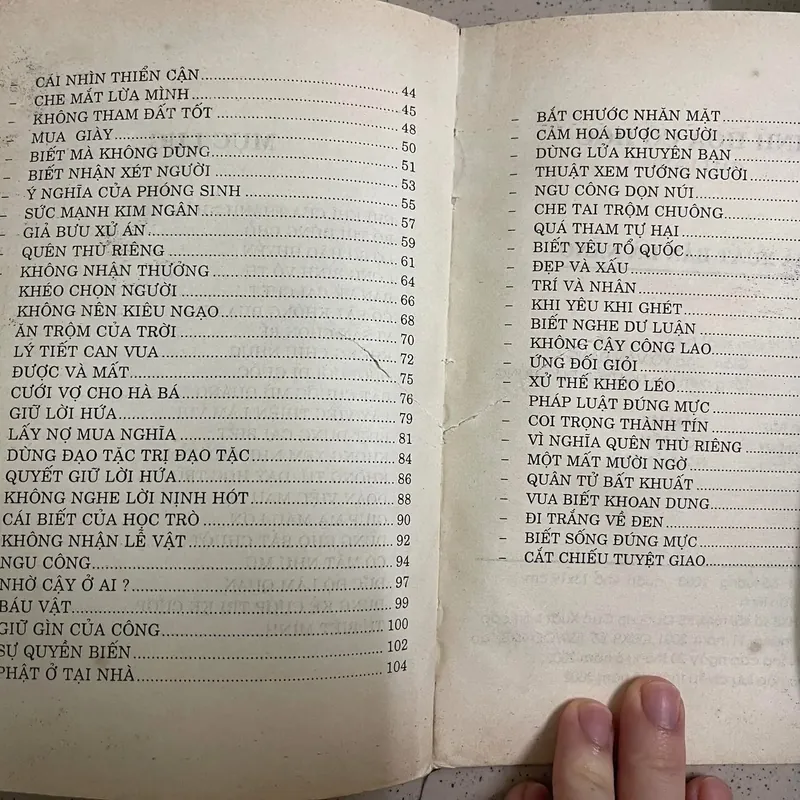 – CÁI NHÌN THIỂN CẬN........ 44
– CHE MẮT LỪA MÌNH........ 45
– KHÔNG THAM ĐẤT TỐT........ 48
– MUA GIÀY........ 50
– BIẾT MÀ KHÔNG DÙNG........ 51
– BIẾT NHẬN XÉT NGƯỜI........ 53
– Ý NGHĨA CỦA PHÓNG SINH........ 55
– SỨC MẠNH KIM NGÂN........ 57
– GIẢ BƯU XỬ ÁN........ 59
– QUÊN THÙ RIÊNG........ 61
– KHÔNG NHẬN THƯỞNG........ 64
– KHÉO CHỌN NGƯỜI........ 66
– KHÔNG NÊN KIÊU NGẠO........ 68
ĂN TRỘM CỦA TRỜI........ 70
LÝ TIẾT CAN VUA........ 72
ĐƯỢC VÀ MẤT........ 75
CƯỚI VỢ CHO HÀ BÁ........ 76
GIỮ LỜI HỨA........ 79
LẤY NỢ MUA NGHĨA........ 81
DÙNG ĐẠO TẶC TRỊ ĐẠO TẶC........ 84
QUYẾT GIỮ LỜI HỨA........ 86
KHÔNG NGHE LỜI NỊNH HÓT........ 88
CÁI BIẾT CỦA HỌC TRÒ........ 90
KHÔNG NHẬN LỄ VẬT........ 92
NGU CÔNG........ 94
NHỜ CẬY Ở AI ?........ 97
BÁU VẬT........ 99
GIỮ GÌN CỦA CÔNG........ 100
SỰ QUYỀN BIẾN........ 102
PHẬT Ở TẠI NHÀ........ 104
– BẮT CHƯỚC NHĂN MẶT........
– CẢM HOÁ ĐƯỢC NGƯỜI........
– DÙNG LỬA KHUYÊN BẠN........
– THUẬT XEM TƯỚNG NGƯỜI........
– NGU CÔNG DỌN NÚI........
– CHE TAI TRỘM CHUÔNG........
– QUÁ THAM TỰ HẠI........
– BIẾT YÊU TỔ QUỐC........
– ĐẸP VÀ XẤU........
– TRÍ VÀ NHÂN........
– KHI YÊU KHI GHÉT........
– BIẾT NGHE DƯ LUẬN........
– KHÔNG CẬY CÔNG LAO........
– ỨNG ĐỐI GIỎI........
– XỬ THẾ KHÉO LÉO........
– PHÁP LUẬT ĐÚNG MỰC........
– COI TRỌNG THÀNH TÍN........
– VÌ NGHĨA QUÊN THÙ RIÊNG........
– MỘT MẤT MƯỜI NGỜ........
– QUÂN TỬ BẤT KHUẤT........
– VUA BIẾT KHOAN DUNG........
– ĐI TRẮNG VỀ ĐEN........
– BIẾT SỐNG ĐÚNG MỰC........
– CẮT CHIẾU TUYỆT GIAO........